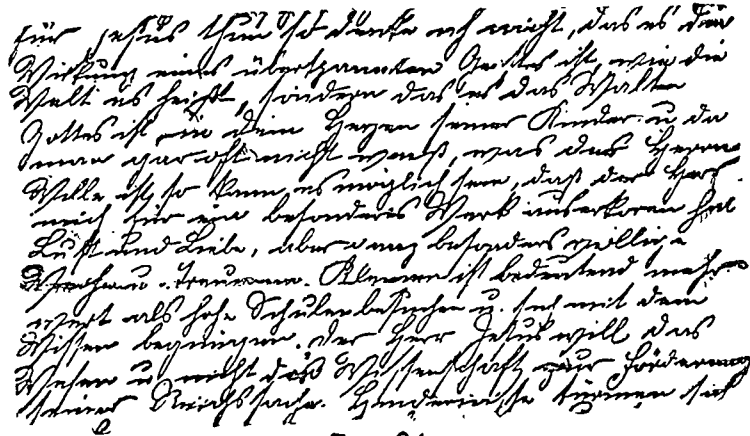 für Jesus thun So denke ich nicht, das es die
Wirkung eines überspannten Geistes ist, wie die
Welt es heißt, sondern das es das Walten
Gottes ist in dem Herzen seiner Kinder u da
man gar oft nicht weiß, was des Herrn
Wille ist, so kann es möglich sein, daß der Herr
mich für ein besonderes Werk auserkoren hat
Lust und Liebe, aber ganz besonders willige
u. ist bedeutend mehr
wert als hohe Schulen besuchen u. sich mit dem
Wissen begnügen. Der Herr Jesus will das
u nicht das Wissenschaft zur Förderung
seiner Reichssache. Hindernisse türmen sich